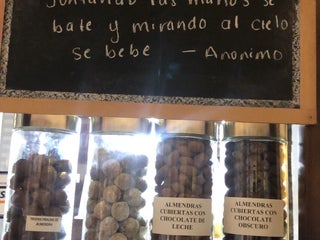 Juntando las manos se
bate y mirando al cielo
se bebe — Anonimo
ALMENDRAS
CUBIERTAS CON
CHOCOLATE DE
LECHE
ALMENDRAS
CUBIERTAS CON
CHOCOLATE
OBSCURO